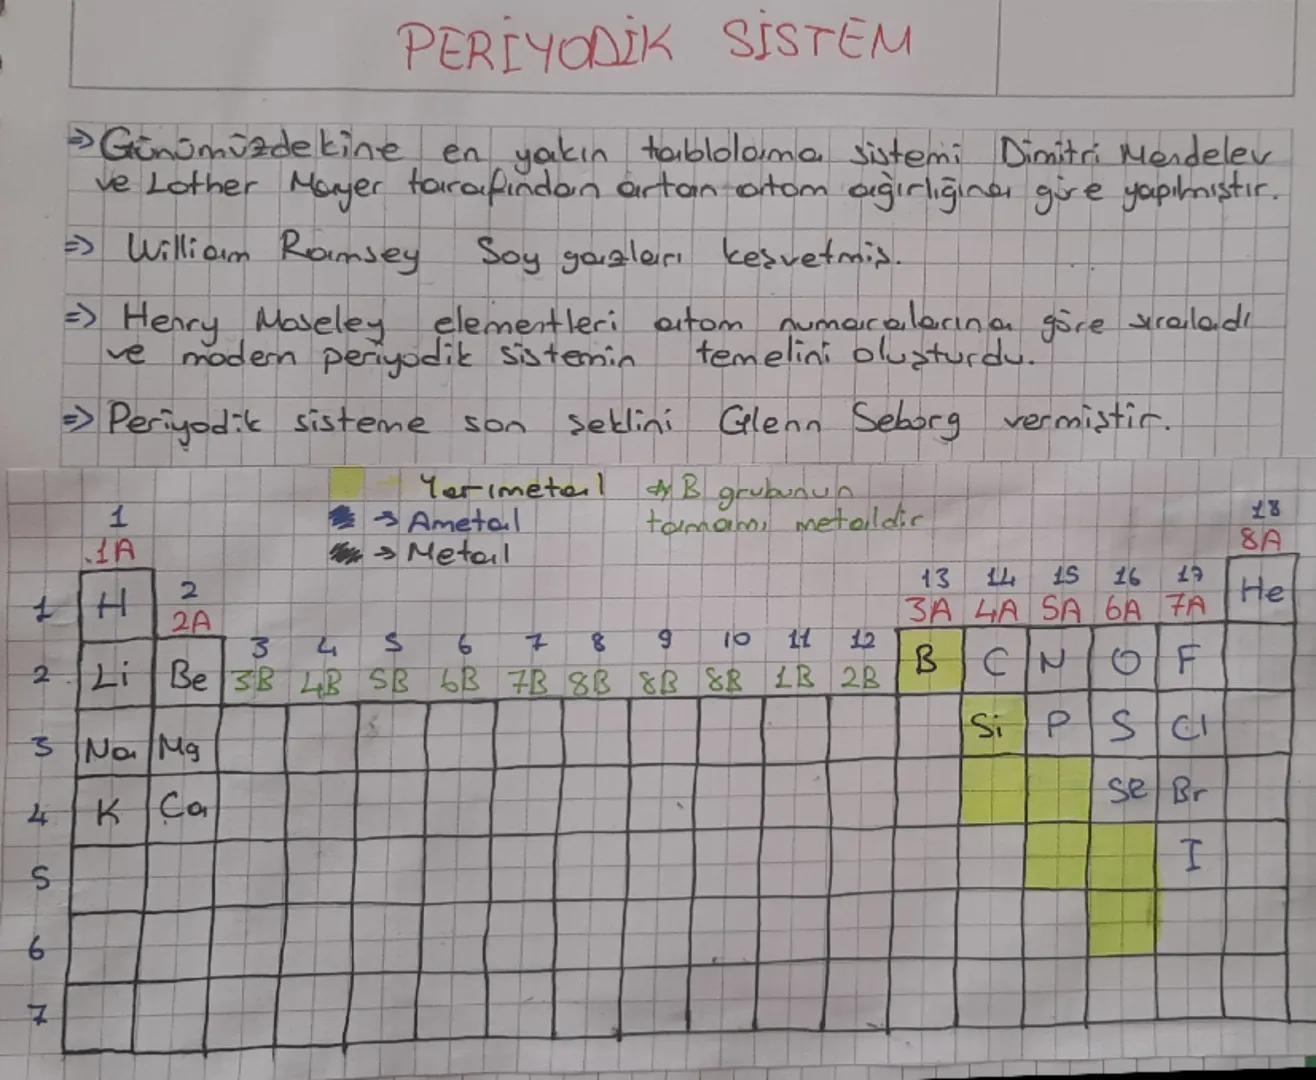 PERİYODİK SİSTEM
=> Günümüzdekine en yakın tablolama sistemi Dimitri Mendelev
ve Lother Mayer tarafından artan atom ağırlığına göre yapılmıştır.
=> William Ramsey Soy gazları keşvetmiş.
=> Henry Moseley elementleri atom numaralarına göre sıraladı
ve modern periyodik sistemin temelini oluşturdu.
=> Periyodik sisteme son şeklini Glenn Seborg vermiştir.
Yarımetal
→ Ametal
→ Metal
B grubunun
tamamı metaldir
1 18
1A 8A
2 13 14 15 16 17
1 H 2A 3A 4A 5A 6A 7A He
3 4 5 6 7 8 9 10 11 12
2 Li Be 3B 4B 5B 6B 7B 8B 8B 8B 1B 2B B C N O F
3 Na Mg Si P S Cl
4 K Ca Se Br
5 I
6
7